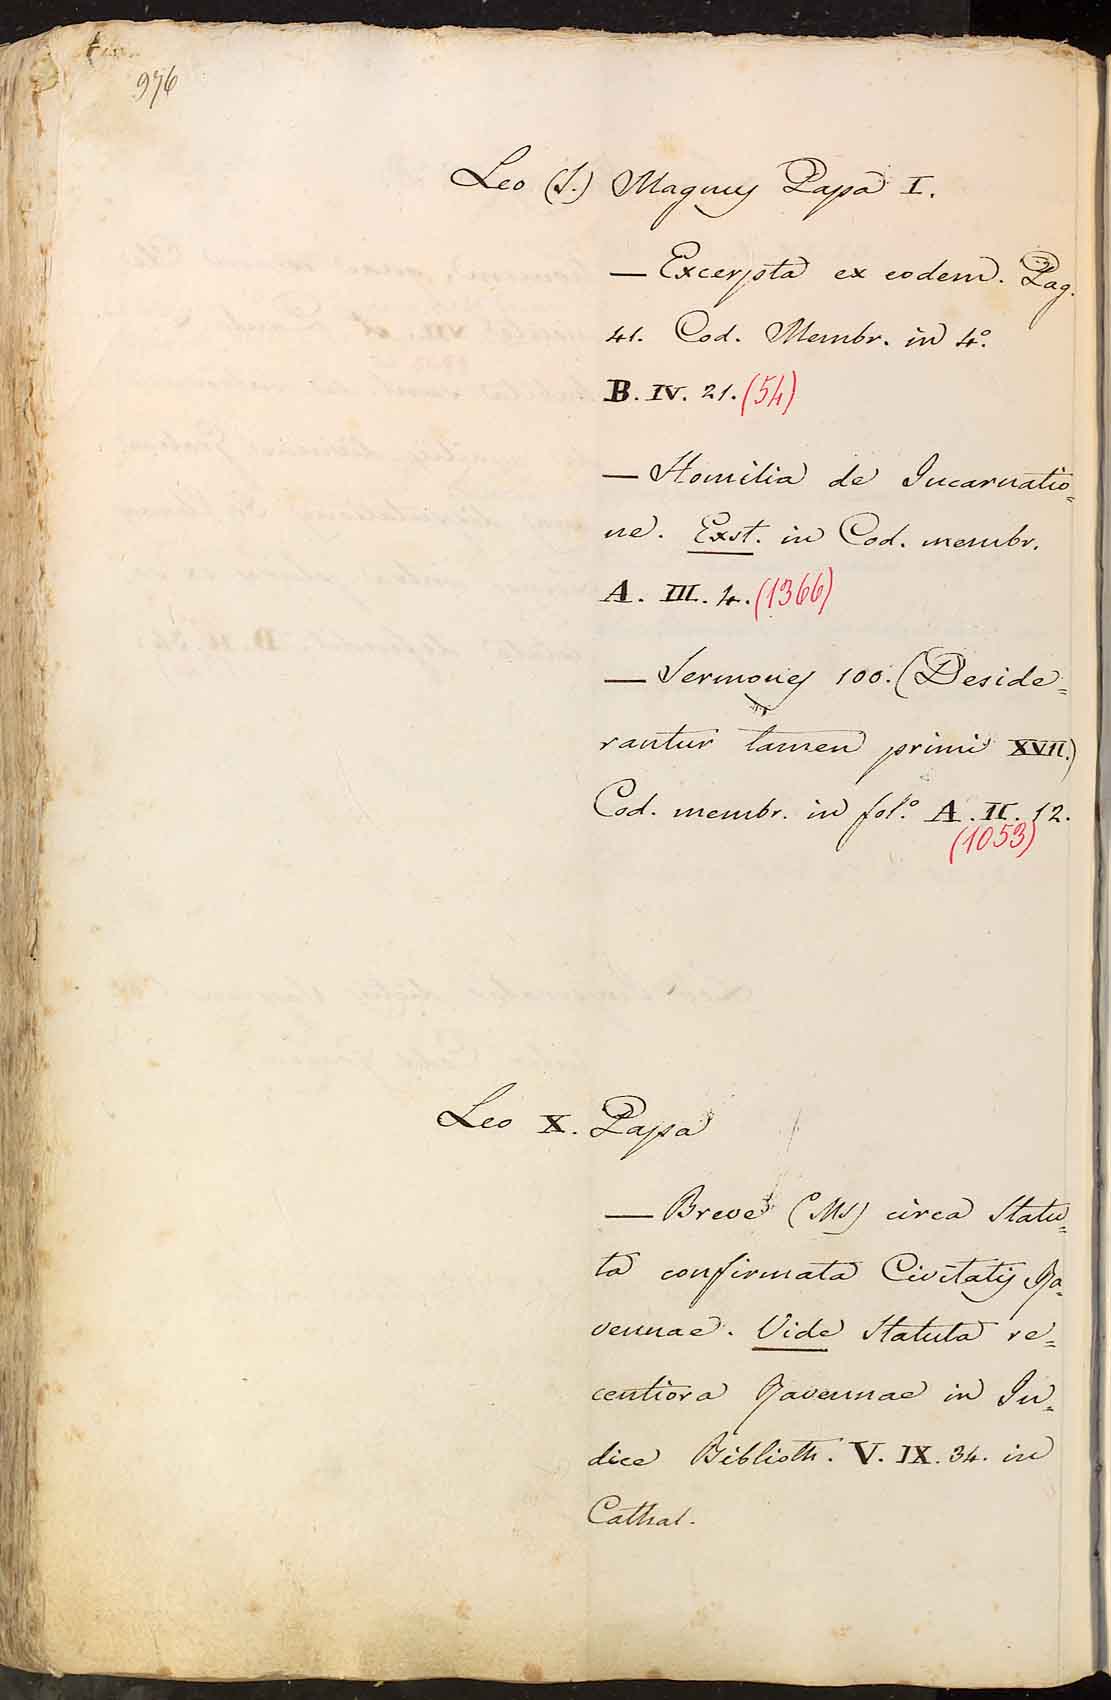 976
Leo (S.) Magnus Papa I.
— Excerpta ex eodem. Pag.
41. Cod. Membr. in 4.º
B. IV. 21. (54)
— Homilia de Incarnatio=
ne. Exst. in Cod. membr.
A. III. 4. (1366)
— Sermones 100. (Deside=
rantur tamen primi XVII.)
Cod. membr. in fol.º A. II. 12.
(1053)
Leo X. Papa
— Breve (MS) circa Statu=
ta confirmata Civitatis Ra=
vennae. Vide Statuta re=
centiora Ravennae in In=
dice Biblioth. V. IX. 34. in
Cathal.